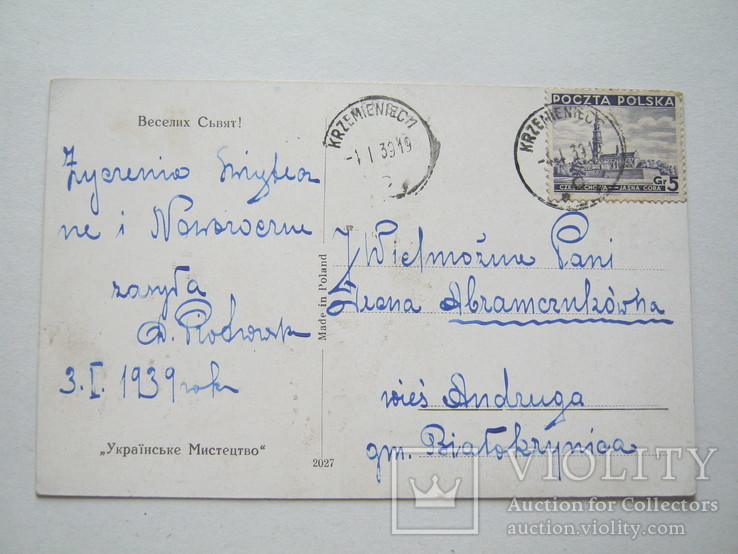 Веселих Сьвят!
Życzenia Świątecz
ne i Noworoczne
zasyła
3.I. 1939 roku
„Українське Мистецтво“
2027
Made in Poland
KRZEMIENIEC
I 39 19
KRZEMIENIEC
POCZTA POLSKA
CZĘSTOCHOWA—JASNA GÓRA
Gr 5
J Wielmożna Pani
Irena Abramczukówna
wieś Andruga
gm. Białokrynica
VIOLITY
Auction for Collectors
auction.violity.com